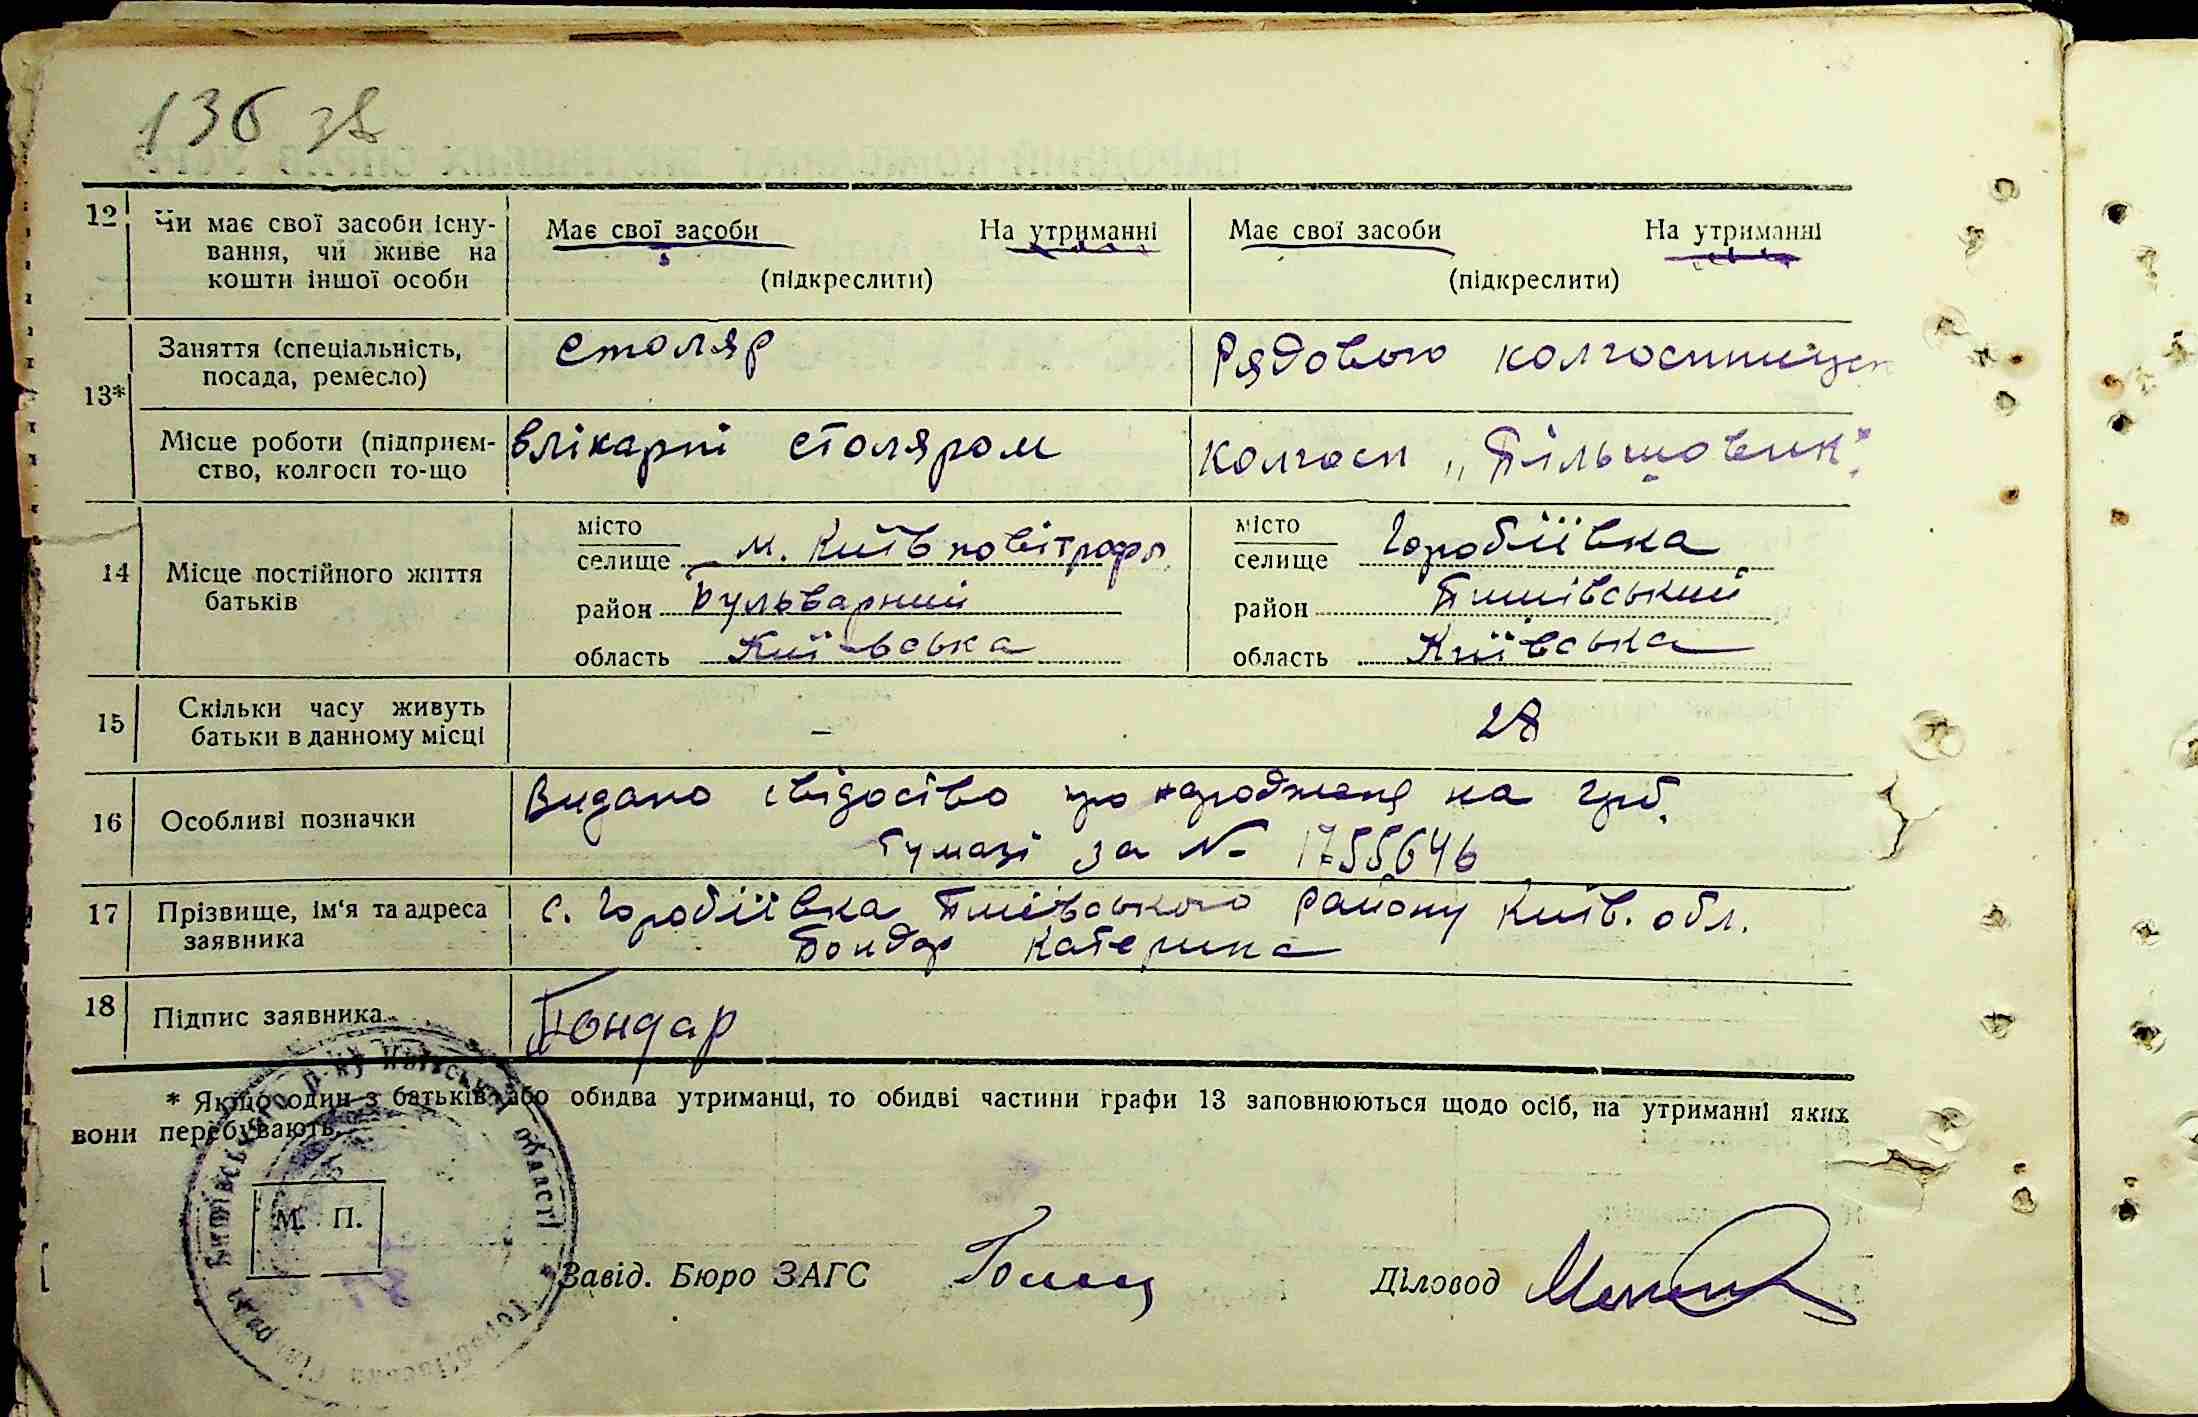 136 зв
12 Чи має свої засоби існу- Має свої засоби На утриманні Має свої засоби На утриманні
вання, чи живе на
кошти іншої особи (підкреслити) (підкреслити)
13* Заняття (спеціальність, столяр Рядовою колгоспницею
посада, ремесло)
Місце роботи (підприєм- влікарні столяром колгосп „Більшовик"
ство, колгосп то-що
14 Місце постійного життя батьків
місто
селище м. Київ повітрофл
район Бульварний
область Київська
місто
селище Горобіївка
район Бишівський
область Київська
15 Скільки часу живуть - 28
батьки в данному місці
16 Особливі позначки Видано свідосіво про народженя на грб.
бумазі за № 1755646
17 Прізвище, ім'я та адреса с. Горобіївка Бишівського району Київ. обл.
заявника Бондар Катерина
18 Підпис заявника Бондар
* Якщо один з батьків або обидва утриманці, то обидві частини графи 13 заповнюються щодо осіб, на утриманні яких
вони перебувають.
М. П.
Завід. Бюро ЗАГС Діловод